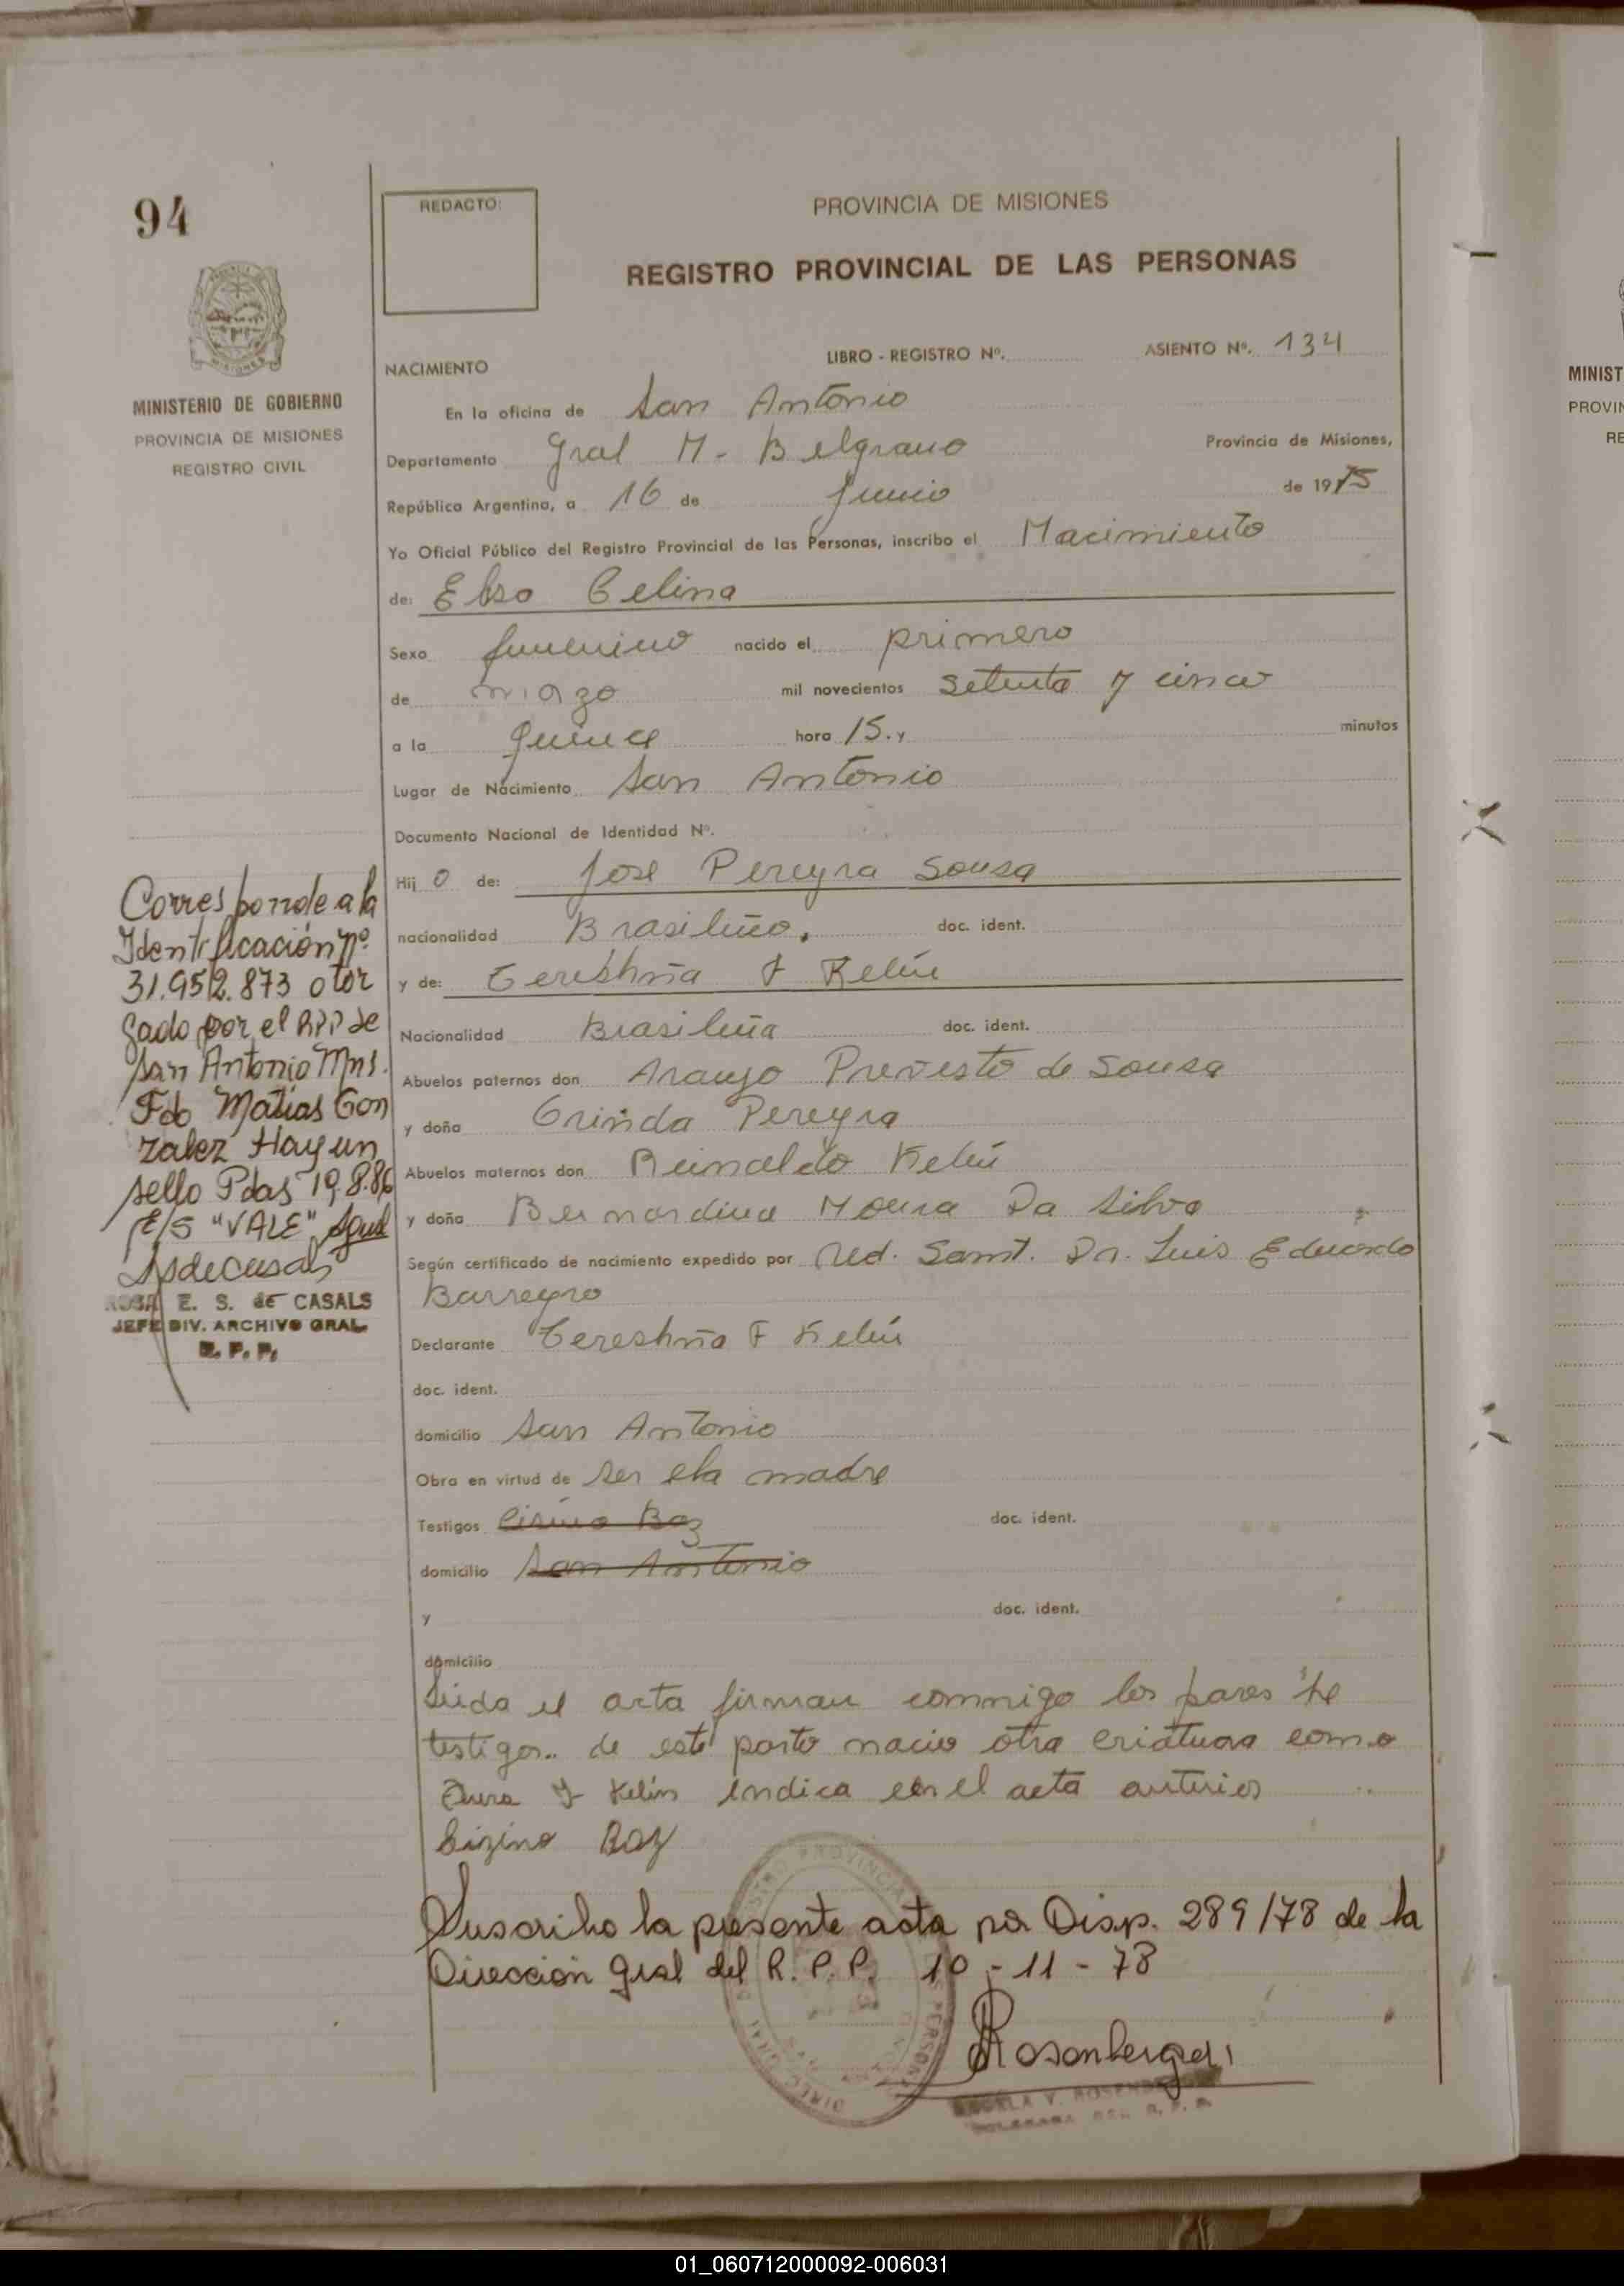 94
REDACTO:
PROVINCIA DE MISIONES
REGISTRO PROVINCIAL DE LAS PERSONAS
MINISTERIO DE GOBIERNO
PROVINCIA DE MISIONES
REGISTRO CIVIL
NACIMIENTO
LIBRO - REGISTRO Nº.
ASIENTO Nº. 134
En la oficina de San Antonio
Departamento Gral M. Belgrano Provincia de Misiones,
República Argentina, a 16 de Junio de 1975
Yo Oficial Público del Registro Provincial de las Personas, inscribo el Nacimiento
de: Celina
Sexo femenino nacido el primero
de marzo mil novecientos setenta y cinco
a la quince hora 15. y minutos
Lugar de Nacimiento San Antonio
Documento Nacional de Identidad Nº.
Hij o de: Jose Pereyra Sousa
nacionalidad Brasileño. doc. ident.
y de:
Nacionalidad Brasileña doc. ident.
Abuelos paternos don Araujo de Sousa
y doña Pereyra
Abuelos maternos don Reinaldo
y doña Bernardina Moura Da Silva
Según certificado de nacimiento expedido por Dr. Luis Eduardo
Barreyro
Declarante
doc. ident.
domicilio San Antonio
Obra en virtud de ser ela madre
Testigos doc. ident.
domicilio San Antonio
y doc. ident.
domicilio
el acta firman commigo los
testigos.. de este parto nacio otra criatura como
indica en el acta anterior
Suscribo la presente acta por Disp. 289/78 de la
Dirección Gral del R. P. P. 10 - 11 - 78
Rosenberger
Corresponde a la
Identificación nº
31.952.873 otor
gado por el RPP de
San Antonio Mns.
Fdo Matias Gon
zalez Hay un
sello Pdas 19.8.86
E/S "VALE"
ROSA E. S. de CASALS
JEFE DIV. ARCHIVO GRAL.
R. P. P.
MINIST
PROVIN
RE
01_060712000092-006031